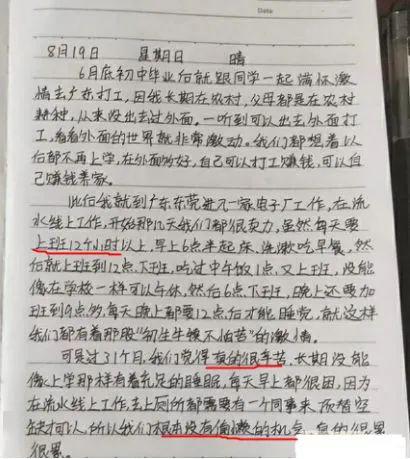 Date
8月19日 星期日 晴
6月底初中毕业后就跟同学一起满怀激
情去广东打工,因我长期在农村,父母都是在农村
耕种,从来没出去过外面。一听到可以出去外面打
工,看看外面的世界就非常激动。我们都想着以
后都不再上学,在外面多好,自己可以打工赚钱,可以自
己赚钱养家。
此后我就到广东东莞进一家电子厂工作,在流
水线上工作,开始那几天我们都很卖力,虽然每天要
上班12个小时以上,早上6点半起床、洗漱吃早餐,然
后就上班到12点下班,吃过中午饭1点又上班,没能
像在学校一样可以午休,然后6点下班,晚上还要加
班到9点多,每天晚上都要12点后才能睡觉,就这样
我们都有着那股“初生牛犊不怕苦”的激情。
可是过31个月,我们觉得真的很辛苦,长期没能
像上学那样有着充足的睡眠,每天早上都很困,因为
在流水线上工作,去上厕所都需要有一个同事来顶替空
缺才可以,所以我们根本没有偷懒的机会,真的很累
很累。